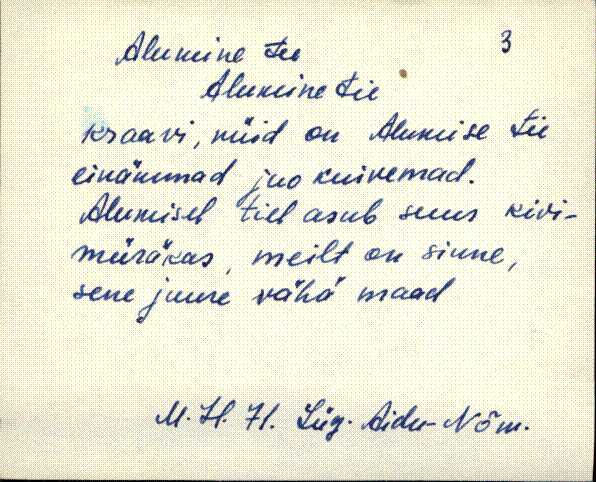 3
Alumine tee
Alumine tie
kraavi, nüid on Alumise tie
einämmad juo kuivemad.
Alumisel tiel asub suus kivi-
müräkas, meilt on sinne,
sene juure vähä maad
M. H. H. Lüg. Aidu-Nõm.